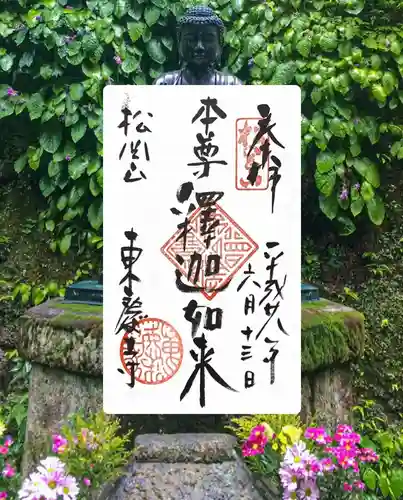 奉拝
平成廿八年
六月十三日
本尊 釋迦如来
松岡山
東慶寺